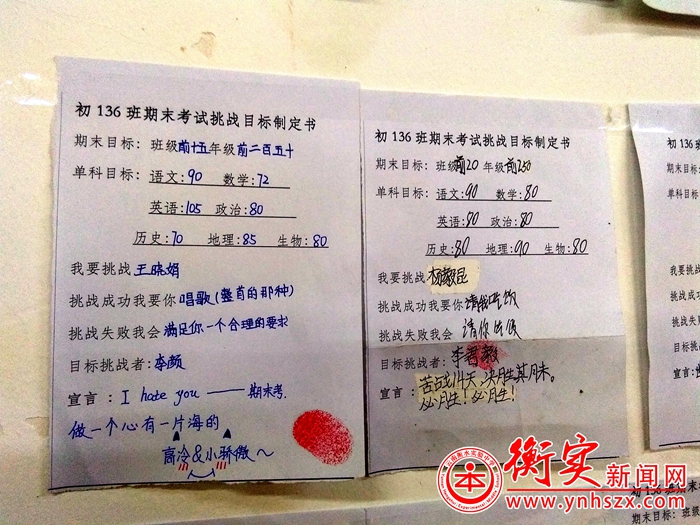 初 136 班期末考试挑战目标制定书
期末目标：班级前十五年级前二百五十
单科目标：语文:90 数学:72
英语:105 政治:80
历史:70 地理:85 生物:80
我要挑战 王晓娟
挑战成功我要你 唱歌(整首的那种)
挑战失败我会 满足你一个合理的要求
目标挑战者: 李颜
宣言: I hate you —— 期末考.
做一个心有一片海的
高冷&小骄傲～
初 136 班期末考试挑战目标制定书
期末目标：班级前20 年级前250
单科目标：语文:90 数学:80
英语:80 政治:80
历史:80 地理:90 生物:80
我要挑战 杨毅昆
挑战成功我要你 请我吃饭
挑战失败我会 请你吃饭
目标挑战者: 李 毅
宣言: 苦战14天,决胜期末。
必胜! 必胜!
初 13
期末目标
单科目标
我要挑战
挑战成功
挑战失败
目标挑战
宣言:
初 136 班
期末目标：班级
衡实新闻网
www.ynhszx.com